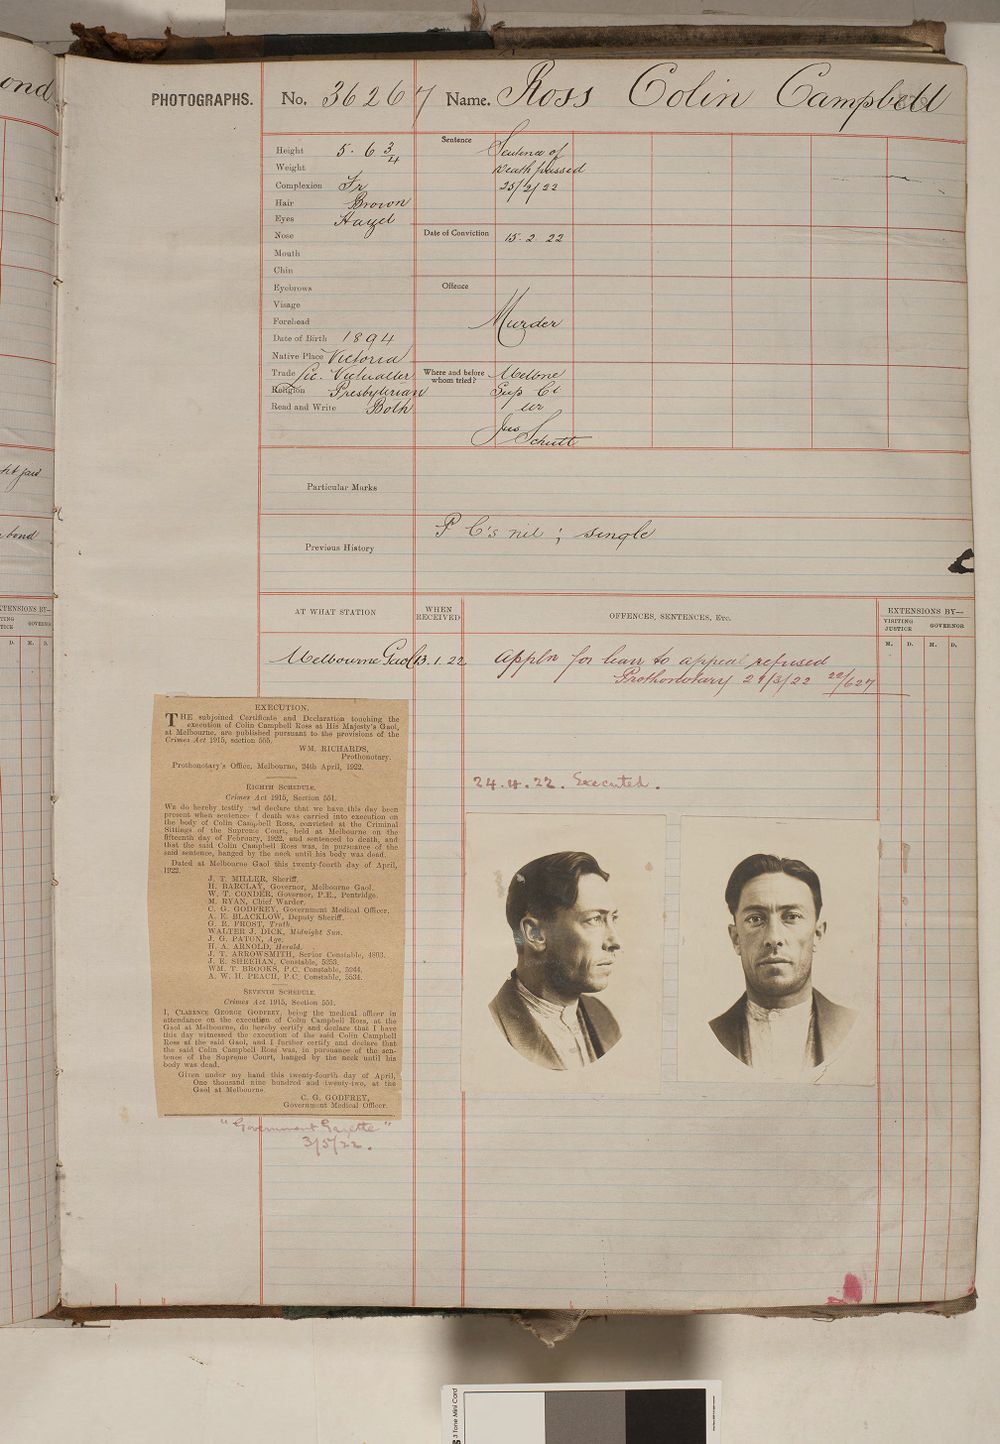 ond
PHOTOGRAPHS.
No. 36267 Name. Ross Colin Campbell
Height 5. 6 3/4
Weight
Complexion Fr
Hair Brown
Eyes Hazel
Nose
Mouth
Chin
Eyebrows
Visage
Forehead
Date of Birth 1894
Native Place Victoria
Trade Lic. Victualler
Religion Presbyterian
Read and Write Both
Sentence
Sentence of
Death passed
25/2/22
Date of Conviction 15. 2. 22
Offence
Murder
Where and before
whom tried?
Melbne
Sup Ct
Schutt
Particular Marks
Previous History
P C's nil ; single
ht jaw
bond
AT WHAT STATION
WHEN
RECEIVED
OFFENCES, SENTENCES, Etc.
EXTENSIONS BY—
VISITING
JUSTICE
GOVERNOR
M. D. M. D.
EXTENSIONS BY—
TING
TICE
GOVERNOR
D. M. D.
Melbourne Gaol 13.1.22
Appln for leave to appeal refused
Prothonotary 21/3/22 22/627
24.4.22. Executed.
EXECUTION.
THE subjoined Certificate and Declaration touching the
execution of Colin Campbell Ross at His Majesty's Gaol,
at Melbourne, are published pursuant to the provisions of the
Crimes Act 1915, section 555.
WM. RICHARDS,
Prothonotary.
Prothonotary's Office, Melbourne, 24th April, 1922.
EIGHTH SCHEDULE.
Crimes Act 1915, Section 551.
We do hereby testify and declare that we have this day been
present when sentence of death was carried into execution on
the body of Colin Campbell Ross, convicted at the Criminal
Sittings of the Supreme Court, held at Melbourne on the
fifteenth day of February, 1922, and sentenced to death, and
that the said Colin Campbell Ross was, in pursuance of the
said sentence, hanged by the neck until his body was dead.
Dated at Melbourne Gaol this twenty-fourth day of April,
1922.
J. T. MILLER, Sheriff.
H. BARCLAY, Governor, Melbourne Gaol.
W. T. CONDER, Governor, P.E., Pentridge.
M. RYAN, Chief Warder.
C. G. GODFREY, Government Medical Officer.
A. E. BLACKLOW, Deputy Sheriff.
G. R. FROST, Truth.
WALTER J. DICK, Midnight Sun.
J. G. PATON, Age.
H. A. ARNOLD, Herald.
J. T. ARROWSMITH, Senior Constable, 4803.
J. E. SHEEHAN, Constable, 5253.
WM. T. BROOKS, P.C. Constable, 5244.
A. W. H. PEACH, P.C. Constable, 5534.
SEVENTH SCHEDULE.
Crimes Act 1915, Section 551.
I, CLARENCE GEORGE GODFREY, being the medical officer in
attendance on the execution of Colin Campbell Ross, at the
Gaol at Melbourne, do hereby certify and declare that I have
this day witnessed the execution of the said Colin Campbell
Ross at the said Gaol, and I further certify and declare that
the said Colin Campbell Ross was, in pursuance of the sen-
tence of the Supreme Court, hanged by the neck until his
body was dead.
Given under my hand this twenty-fourth day of April,
One thousand nine hundred and twenty-two, at the
Gaol at Melbourne.
C. G. GODFREY,
Government Medical Officer.
"Government Gazette"
3/5/22.
3 Tone Mini Card